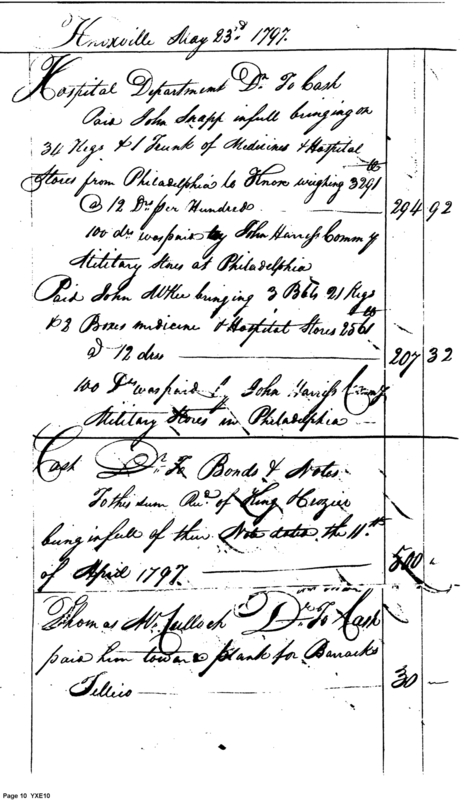 Knoxville May 23d. 1797.
Hospital Department Dr. To Cash
Paid John Snapp in full bringing on
34 Kegs & 1 Trunk of Medicines & Hospital
Stores from Philadelphia to Knox weighing 3291 wt
@ 12 Drs per Hundred 294 92
100 drs was paid by John Harress Commy
Military Stores at Philadelphia
Paid John McKee bringing 3 Bbls 21 Kegs
& 2 Boxes medicine & Hospital Stores 2561 wt
@ 12 drs 207 32
100 Drs was paid by John Harress Commy
Military Stores in Philadelphia
Cash Dr. To Bonds & Notes
To this sum Recd. of King & Crozier
being in full of their Note dated the 11th
of April 1797. 500 -
Thomas McCulloch Dr. To Cash
paid him toward plank for Barracks
Tellico 30 -
Page 10 YXE10